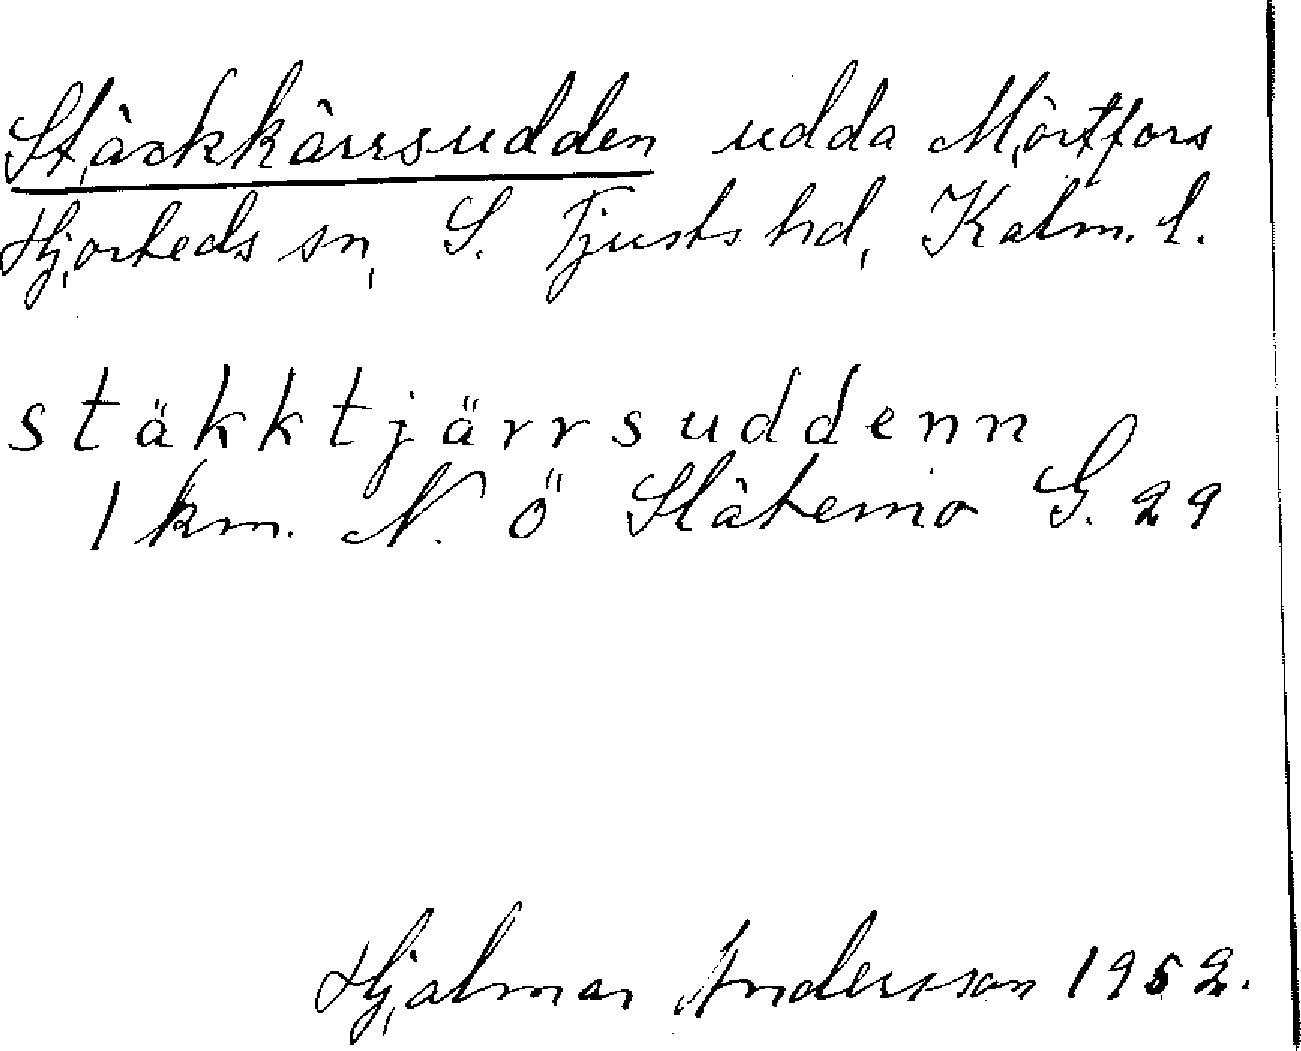 Stäckkärrsudden udda Mörtfors
Hjorteds sn, S. Tjusts hd, Kalm. l.
stäkktjärrsuddenn
1 km. N. Ö Slätemo G. 29
Hjalmar Andersson 1952.